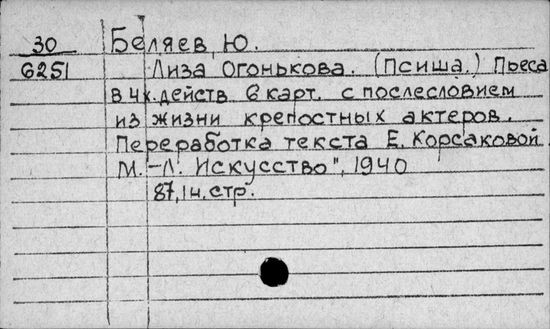 30 Беляев, Ю.
6251 Лиза Огонькова. (Псиша.) Пьеса
в 4х. действ 6 карт. с послесловием
из жизни крепостных актеров.
Переработка текста Е. Корсаковой.
М.-Л. Искусство", 1940
87, 1н. стр.